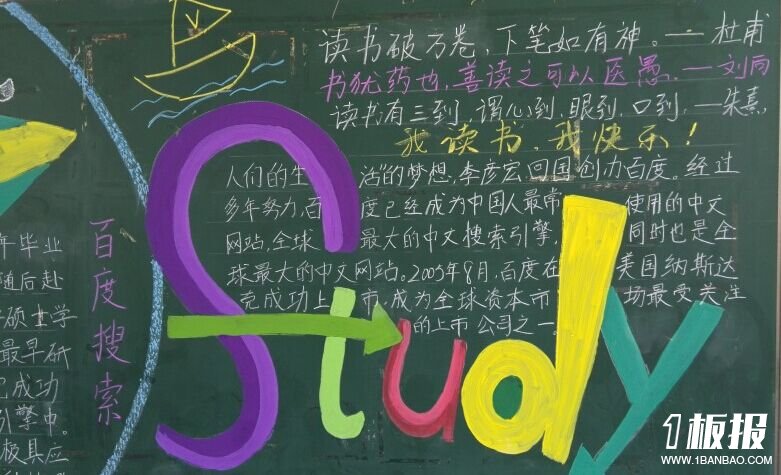 读书破万卷,下笔如有神。——杜甫
书犹药也,善读之可以医愚。—刘向
读书有三到,谓心到,眼到,口到,—朱熹
我读书,我快乐!
人们的生活"的梦想,李彦宏回国创办百度。经过
多年努力,百度已经成为中国人最常使用的中文
网站,全球最大的中文搜索引擎,同时也是全
球最大的中文网站。2005年8月,百度在美国纳斯达
克成功上市,成为全球资本市场最受关注
的上市公司之一。
Study
百度搜索
年毕业
随后赴
硕士学
最早研
成功
引擎中
极具应
1板报
WWW.1BANBAO.COM